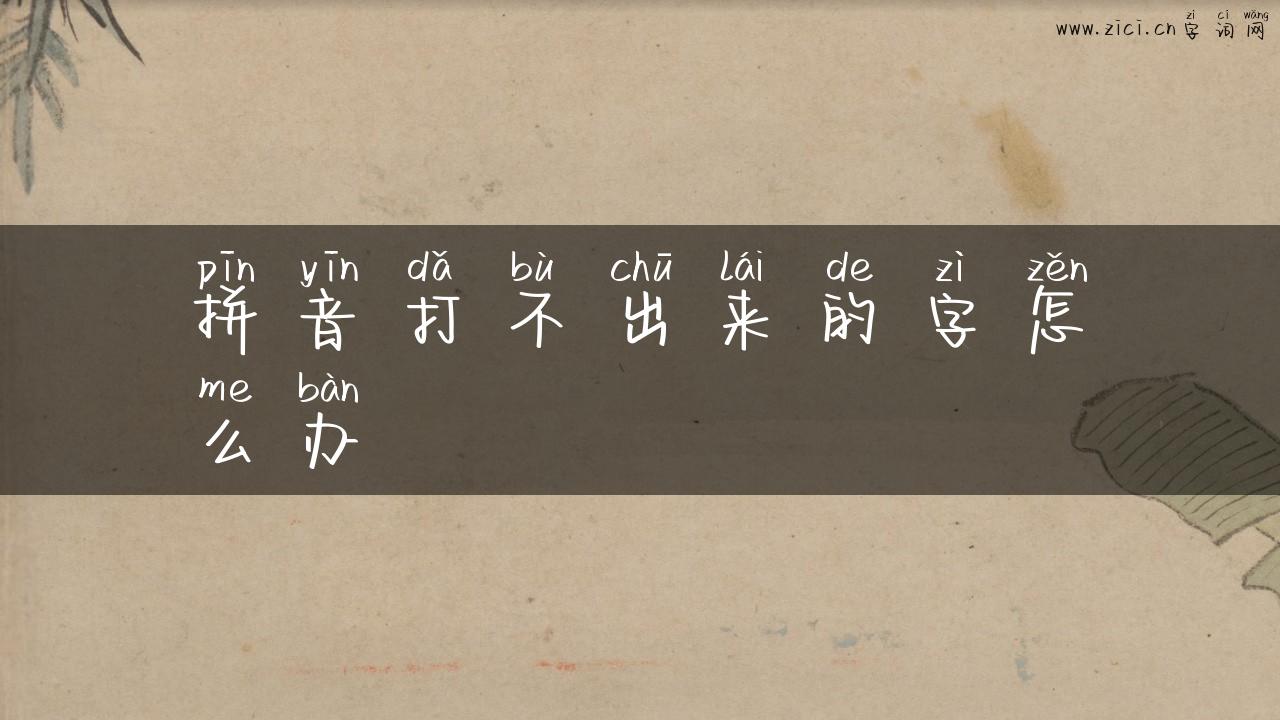 zì cí wǎng
www.zici.cn 字词网
pīn yīn dǎ bù chū lái de zì zěn
拼音打不出来的字怎
me bàn
么办